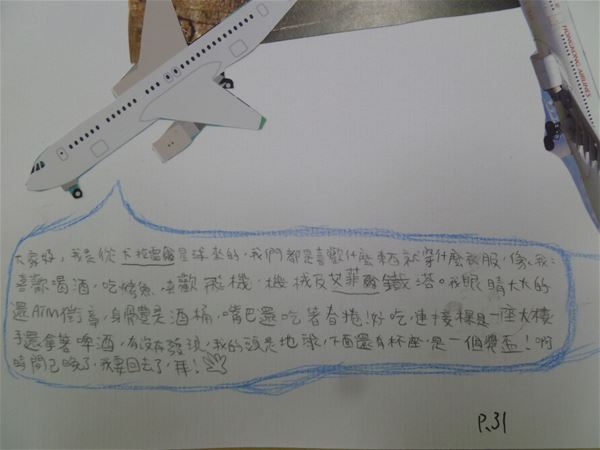 HONGKONG AIRLINES
大家好，我是從大拉雪龍星球來的，我們都是喜歡什麼東西就穿什麼衣服，像我：
喜歡喝酒，吃烤魚，喜歡飛機，機械及艾菲爾鐵塔。我眼睛大大的
還ATM，身體是酒桶，嘴巴還吃著春捲！好吃，連接棵是一座大樓
手還拿著啤酒，有沒有發現，我的頭是地球，下面還有杯座，是一個獎盃！啊
時間已晚了，我要回去了，拜！
P.31